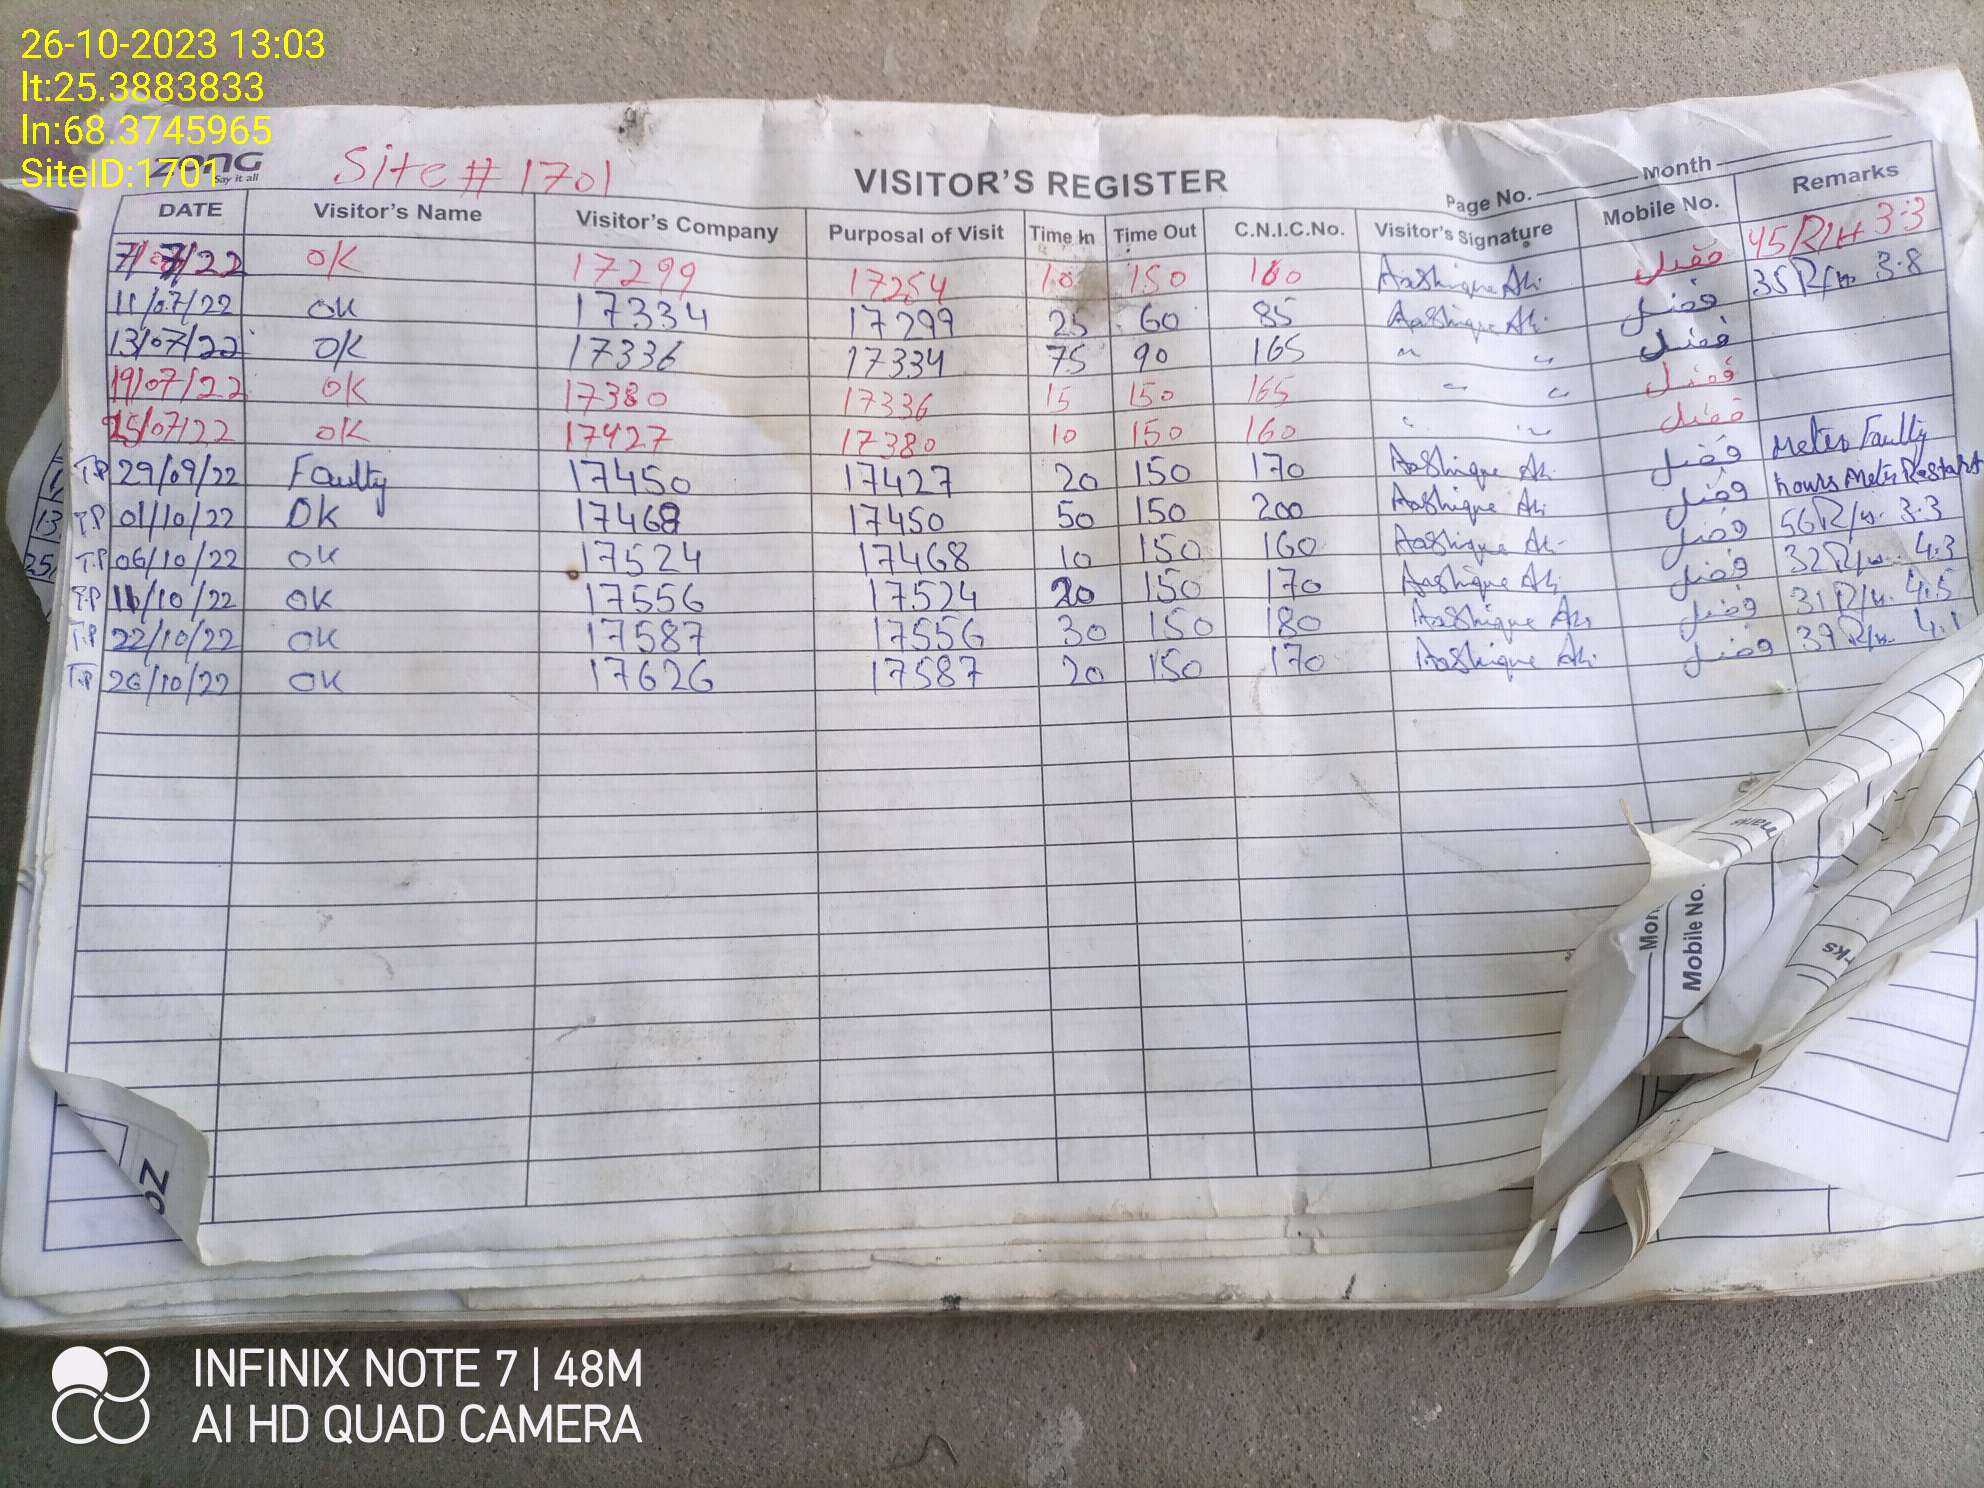 26-10-2023 13:03
lt:25.3883833
ln:68.3745965
SiteID:1701
zong
Say it all
Site # 1701
VISITOR'S REGISTER
Page No.
Month
DATE Visitor's Name Visitor's Company Purposal of Visit Time In Time Out C.N.I.C.No. Visitor's Signature Mobile No. Remarks
OK 17299 17254 10 150 160 Aashique Ali فضل 45 R/H 3.3
11/07/22 OK 17334 17299 25 60 85 Aashique Ali فضل 35 R/H 3.8
13/07/22 OK 17336 17334 75 90 165 " " فضل
19/07/22 OK 17380 17336 15 150 165 " " فضل
25/07/22 OK 17427 17380 10 150 160 " " فضل
T.P 29/09/22 Faulty 17450 17427 20 150 170 Aashique Ali فضل Meter Faulty
T.P 01/10/22 OK 17468 17450 50 150 200 Aashique Ali فضل hours Meter Restart
T.P 06/10/22 OK 17524 17468 10 150 160 Aashique Ali فضل 56 R/H 3.3
T.P 11/10/22 OK 17556 17524 20 150 170 Aashique Ali فضل 32 R/H 4.3
T.P 22/10/22 OK 17587 17556 30 150 180 Aashique Ali فضل 31 R/H 4.5
T.P 26/10/22 OK 17626 17587 20 150 170 Aashique Ali فضل 39 R/H 4.1
Mobile No.
INFINIX NOTE 7 | 48M
AI HD QUAD CAMERA